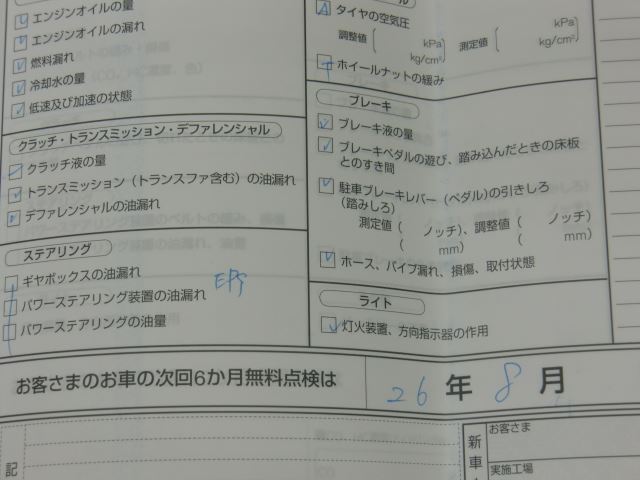 エンジンオイルの量
エンジンオイルの漏れ
燃料漏れ
冷却水の量
低速及び加速の状態
クラッチ・トランスミッション・デファレンシャル
クラッチ液の量
トランスミッション(トランスファ含む)の油漏れ
デファレンシャルの油漏れ
ステアリング
ギヤボックスの油漏れ
パワーステアリング装置の油漏れ
パワーステアリングの油量
EPS
タイヤの空気圧
調整値 kPa kg/cm² 測定値 kPa kg/cm²
ホイールナットの緩み
ブレーキ
ブレーキ液の量
ブレーキペダルの遊び、踏み込んだときの床板
とのすき間
駐車ブレーキレバー(ペダル)の引きしろ
(踏みしろ)
測定値( ノッチ)、調整値( ノッチ)
( mm) ( mm)
ホース、パイプ漏れ、損傷、取付状態
ライト
灯火装置、方向指示器の作用
お客さまのお車の次回6か月無料点検は 26 年 8 月
記
新車
お客さま
実施工場